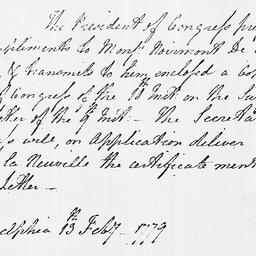 The President of Congress pre
mpliments to Monsr Normont De
& transmits to him enclosed a Co
f Congress of the 10th Inst. on the Su
etter of the 9th Inst. — The Secreta
s will, on Application deliver
la Neuville the certificate ment
Letter —
delphia 13th Feby — 1779